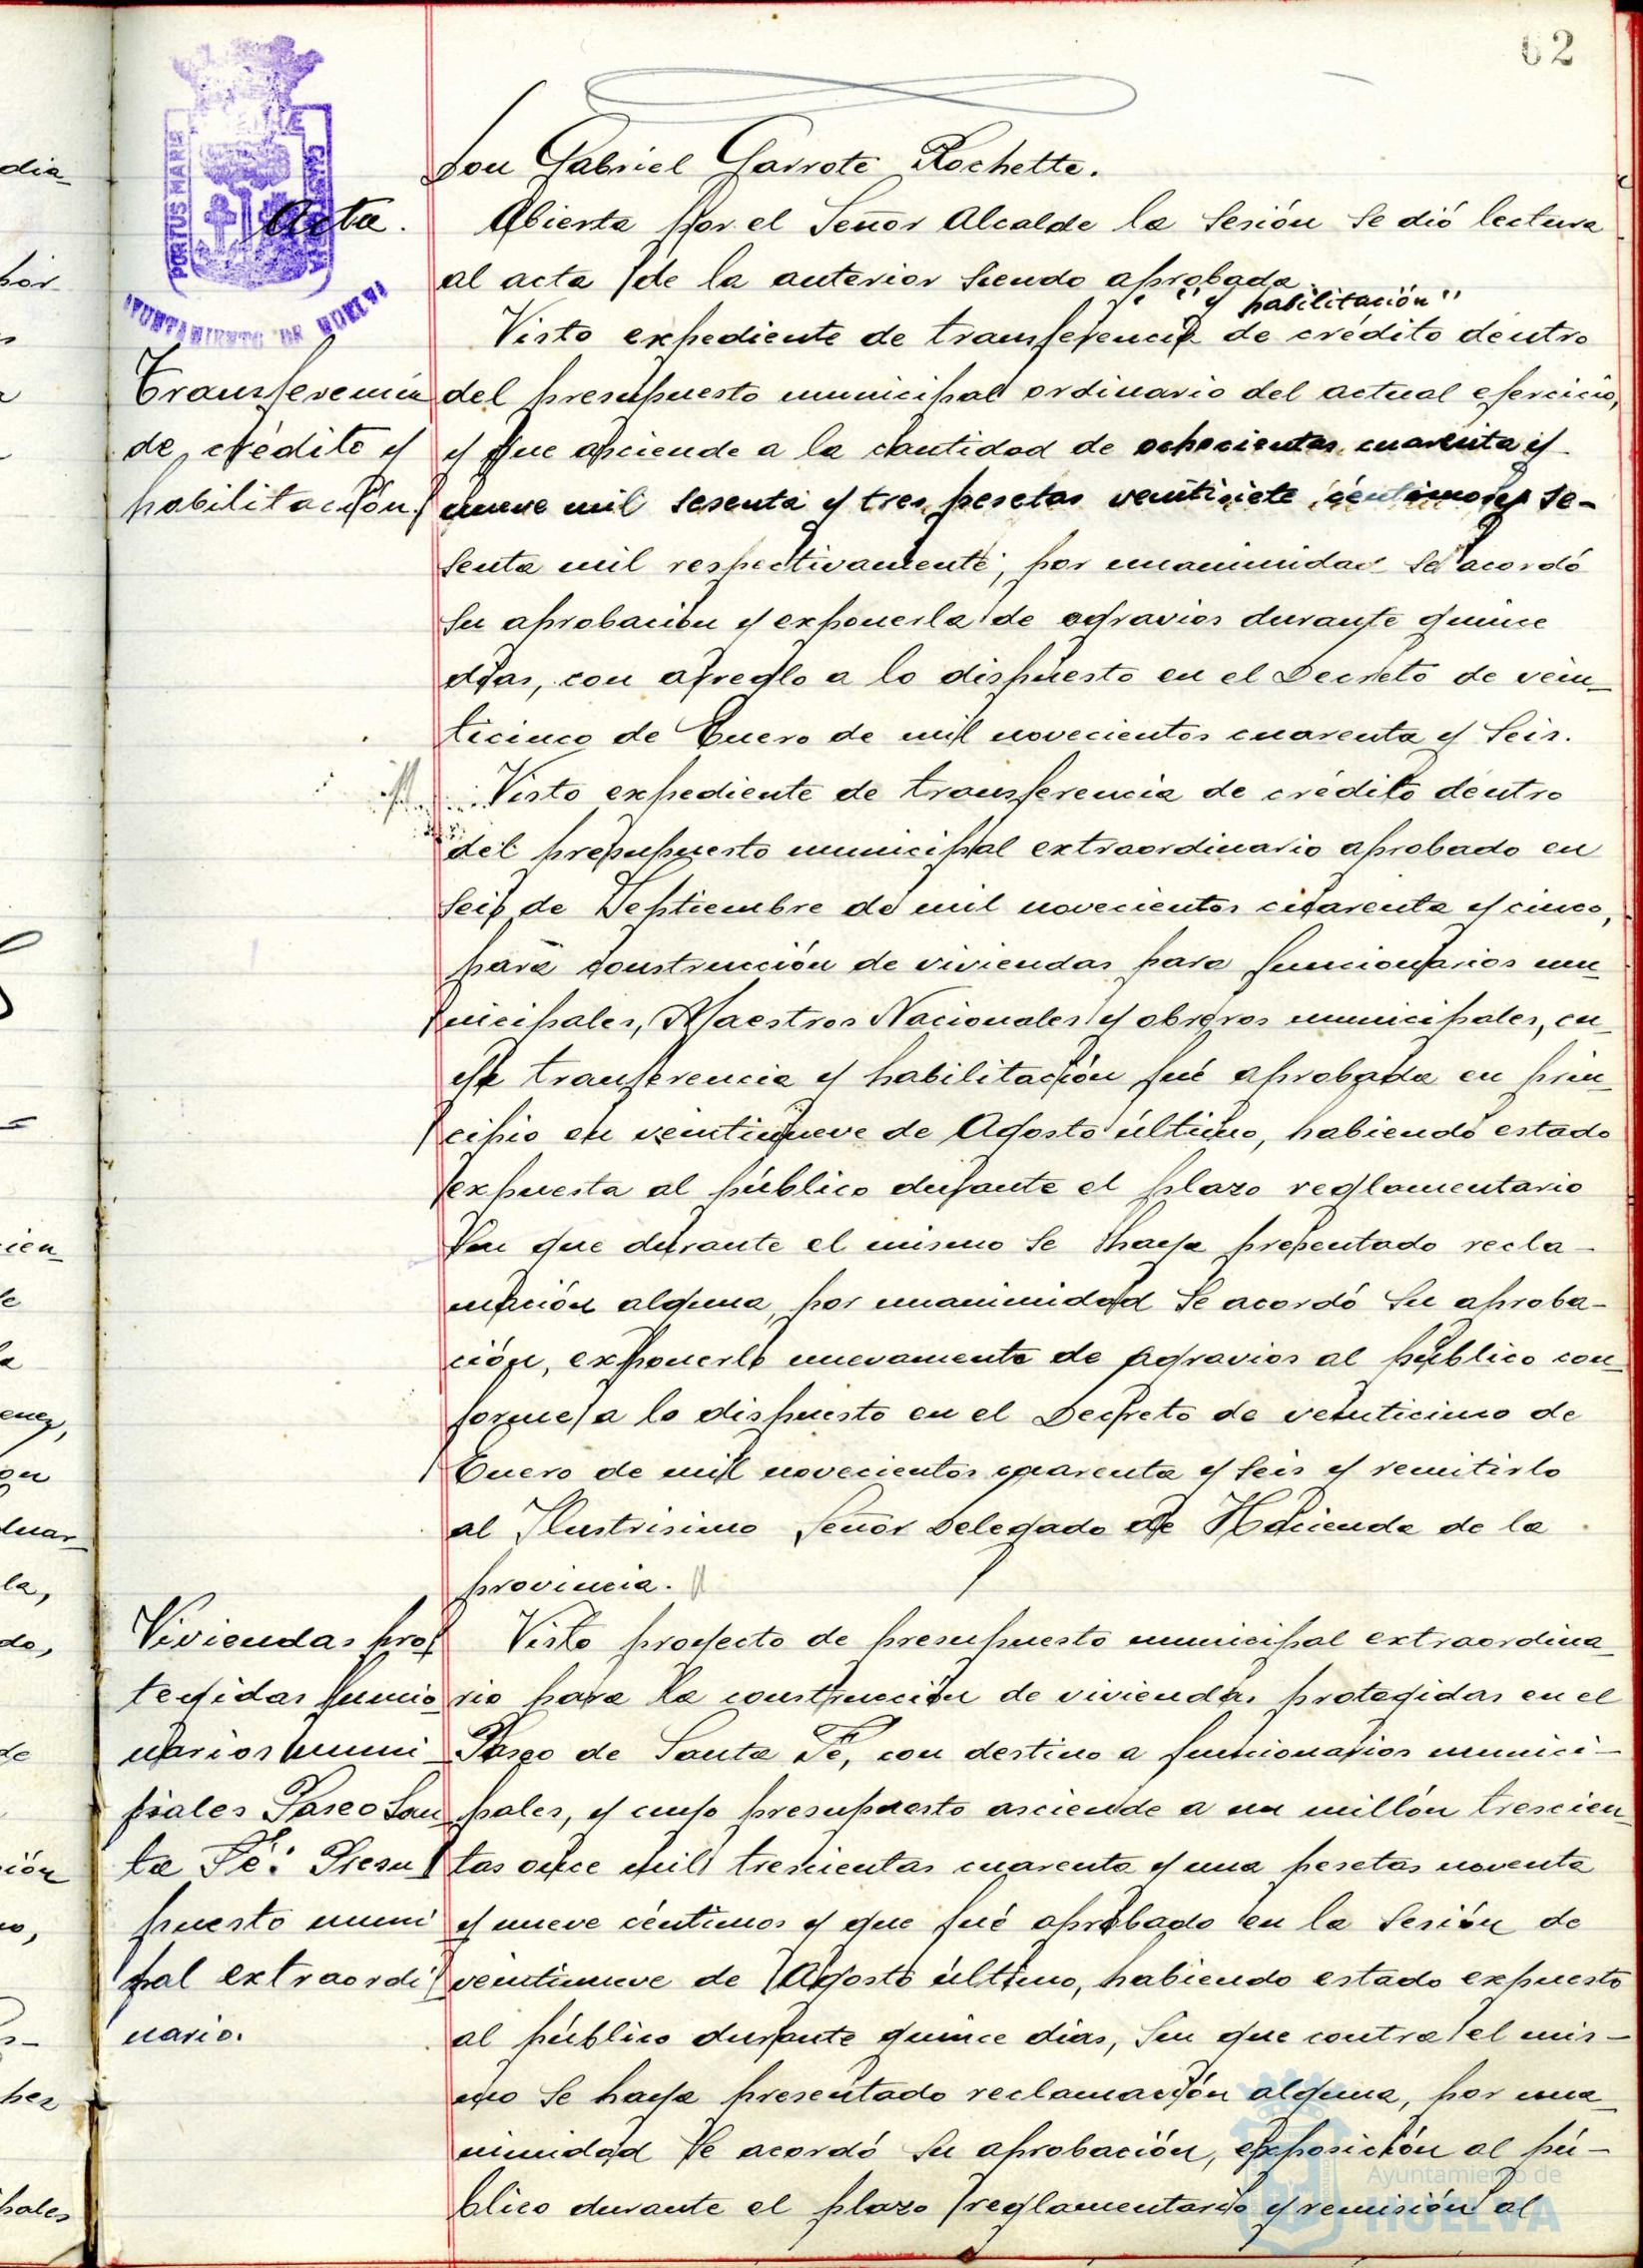 62
Don Gabriel Garrote Rochette.
Acta.
Abierta por el Señor Alcalde la Sesión se dió lectura
al acta de la anterior siendo aprobada.
" y habilitación"
Visto expediente de transferencia de crédito dentro
Transferencia
de crédito y
habilitación.
del presupuesto municipal ordinario del actual ejercicio,
y que asciende a la cantidad de ochocientas cuarenta y
nueve mil sesenta y tres pesetas veintisiete céntimos y se-
senta mil respectivamente, por unanimidad se acordó
su aprobación y exponerla de agravios durante quince
días, con arreglo a lo dispuesto en el Decreto de vein-
ticinco de Enero de mil novecientos cuarenta y seis.
Visto expediente de transferencia de crédito dentro
del presupuesto municipal extraordinario aprobado en
seis de Septiembre de mil novecientos cuarenta y cinco,
para construcción de viviendas para funcionarios mu-
nicipales, Maestros Nacionales y obreros municipales, cu-
ya transferencia y habilitación fué aprobada en prin-
cipio en veintinueve de Agosto último, habiendo estado
expuesta al público durante el plazo reglamentario
sin que durante el mismo se haya presentado recla-
mación alguna, por unanimidad se acordó su aproba-
ción, exponerlo nuevamente de agravios al público con-
forme a lo dispuesto en el Decreto de veinticinco de
Enero de mil novecientos cuarenta y seis y remitirlo
al Ilustrisimo Señor Delegado de Hacienda de la
provincia.
Viviendas pro-
tegidas funcio-
narios muni-
pales Paseo San-
ta Fé: Presu-
puesto muni
pal extraordi-
nario.
Visto proyecto de presupuesto municipal extraordina-
rio para la construcción de viviendas protegidas en el
Paseo de Santa Fé, con destino a funcionarios munici-
pales, y cuyo presupuesto asciende a un millón trescien-
tas once mil trescientas cuarenta y una pesetas noventa
y nueve céntimos y que fué aprobado en la sesión de
veintinueve de Agosto último, habiendo estado expuesto
al público durante quince días, sin que contra el mis-
mo se haya presentado reclamación alguna, por una-
nimidad se acordó su aprobación, exposición al pú-
blico durante el plazo reglamentario y remisión al
PORTUS MARIS
AYUNTAMIENTO DE HUELVA
Ayuntamiento de
HUELVA